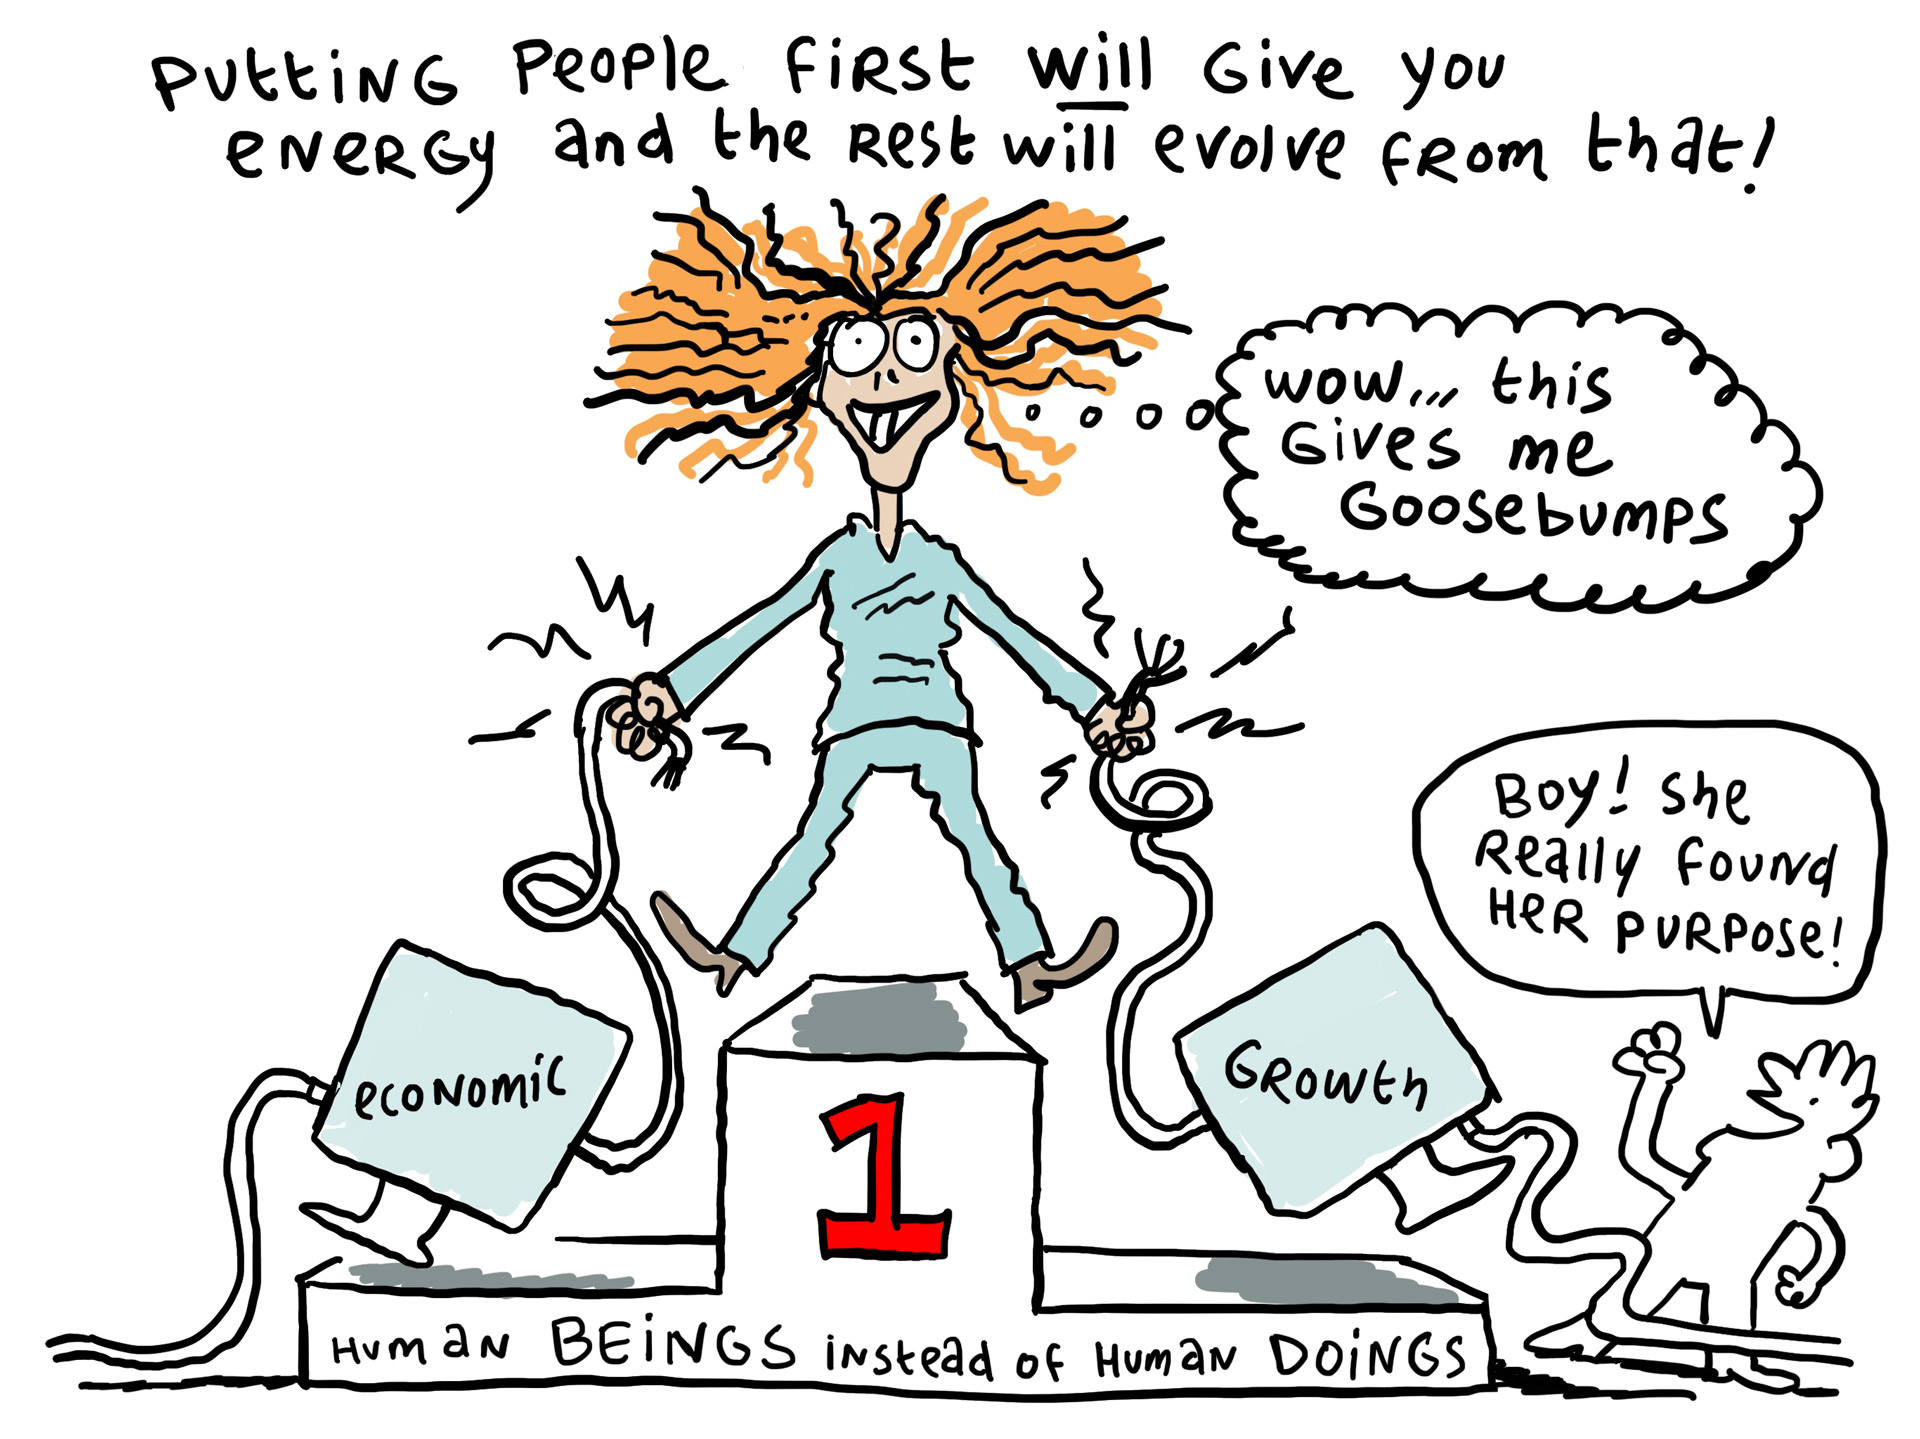 Putting People first will Give you
energy and the Rest will evolve from that!
WOW,,, this
Gives me
Goosebumps
Boy! She
Really found
Her purpose!
economic
Growth
1
Human BEiNGS instead of Human DOiNGS